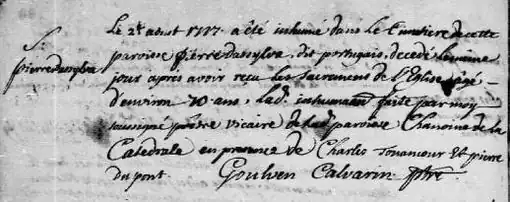 Le 2e aoust 1717. a été inhumé dans le Cimetiere de cette
S.
pierre dasylva
paroisse pierre dasylva, dit portugais, decedé le mime
jour après avoir reçu les Sacremens de l'Eglise agé
d'environ 70 ans, lad. inhumaõn faite par moy
soussigné prêtre vicaire de lad. paroisse Chanoine de la
Catedrale en presence de Charles Et pierre
du pont. Goulven Calvarin ptre